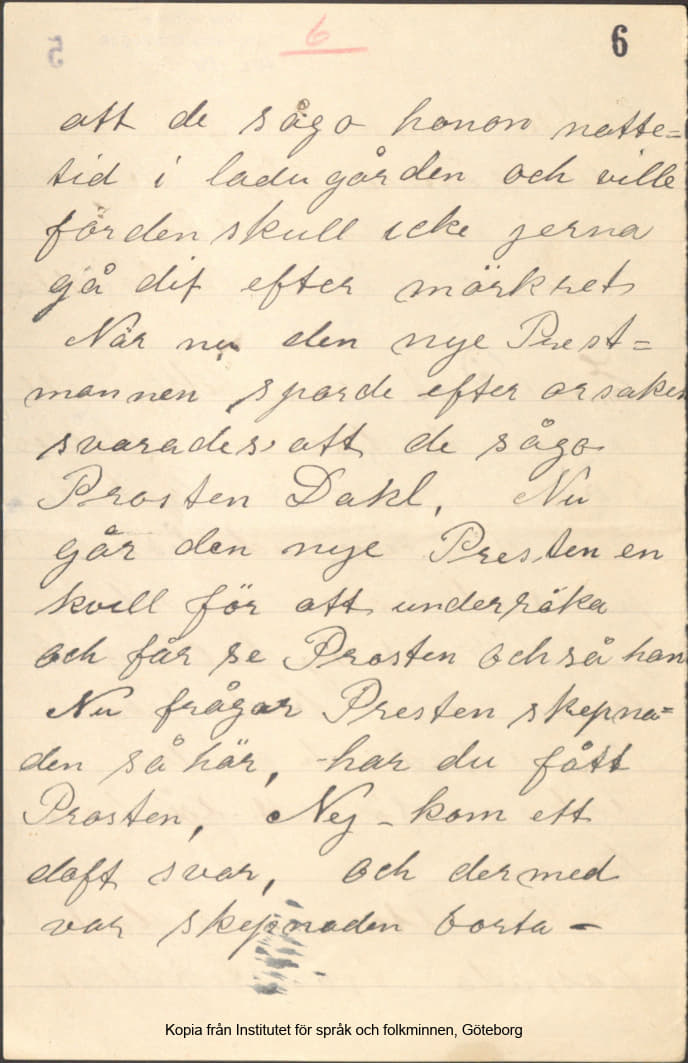 6
6
att de sågo honom natte=
tid i ladugården och ville
fördenskull icke gerna
gå dit efter mörkret
När nu den nye Prest=
mannen sporde efter orsaken
svarades att de sågo
Prosten Dahl. Nu
går den nye Presten en
kvell för att undersöka
och får se Prosten också han
Nu frågar Presten skepna=
den så här, -har du fått
Prosten, Nej - kom ett
doft svar, och dermed
var skepnaden borta -
Kopia från Institutet för språk och folkminnen, Göteborg